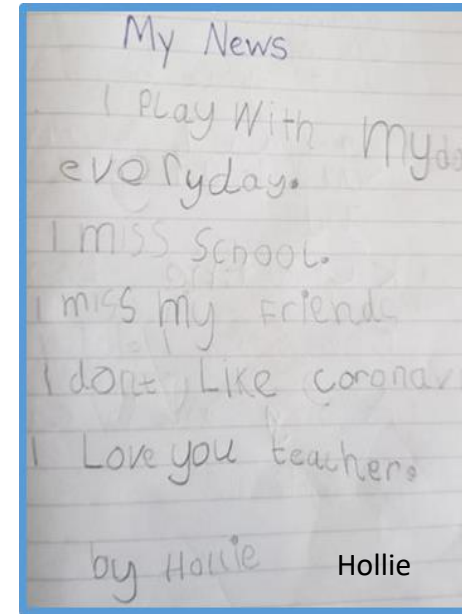 My News
I Play With my
everyday.
I miss School.
I miss my Friend
I dont Like coronav
I Love you teacher.
by Hollie
Hollie